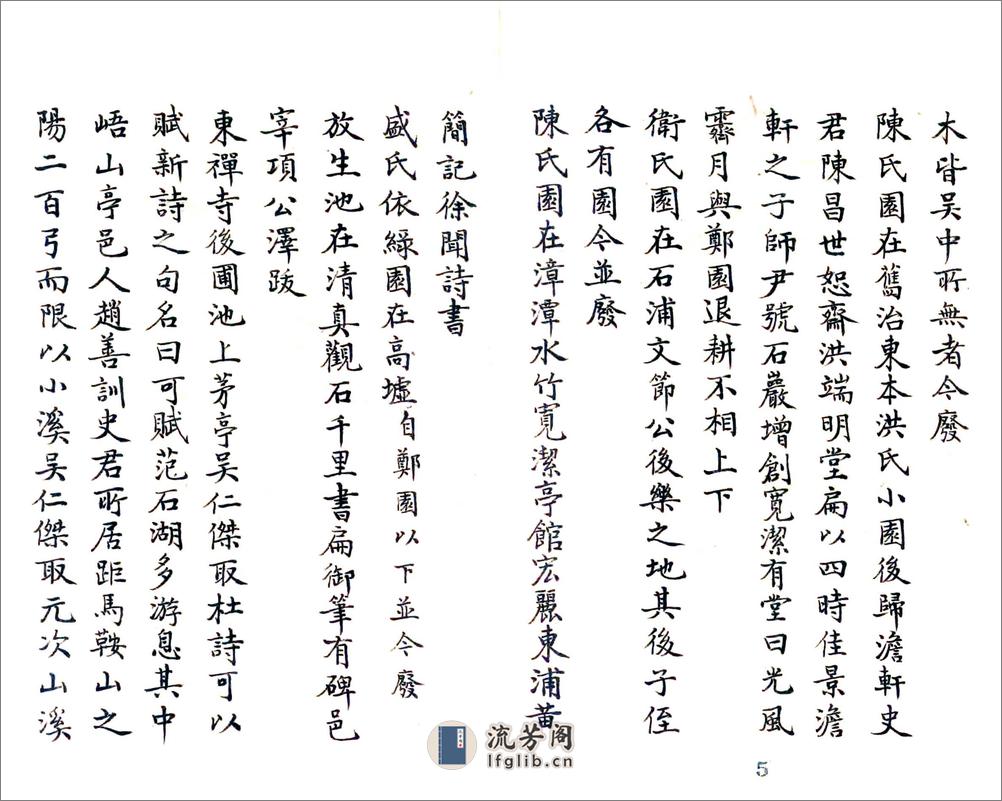 木皆吴中所無者今廢
陳氏園在舊治東本洪氏小園後歸澹軒史
君陳昌世恕齋洪端明堂扁以四時佳景澹
軒之子師尹號石巖增創寬潔有堂曰光風
霽月與鄭園退耕不相上下
衛氏園在石浦文節公後樂之地其後子侄
各有園今並廢
陳氏園在漳潭水竹寬潔亭館宏麗東浦黄
簡記徐聞詩書
盛氏依綠園在高墟自鄭園以下並今廢
放生池在清真觀石千里書扁御筆有碑邑
宰項公澤跋
東禪寺後圃池上茅亭吴仁傑取杜詩可以
賦新詩之句名曰可賦范石湖多游息其中
峿山亭邑人趙善訓史君所居距馬鞍山之
陽二百弓而限以小溪吴仁傑取元次山溪
流芳阁
lfglib.cn
5